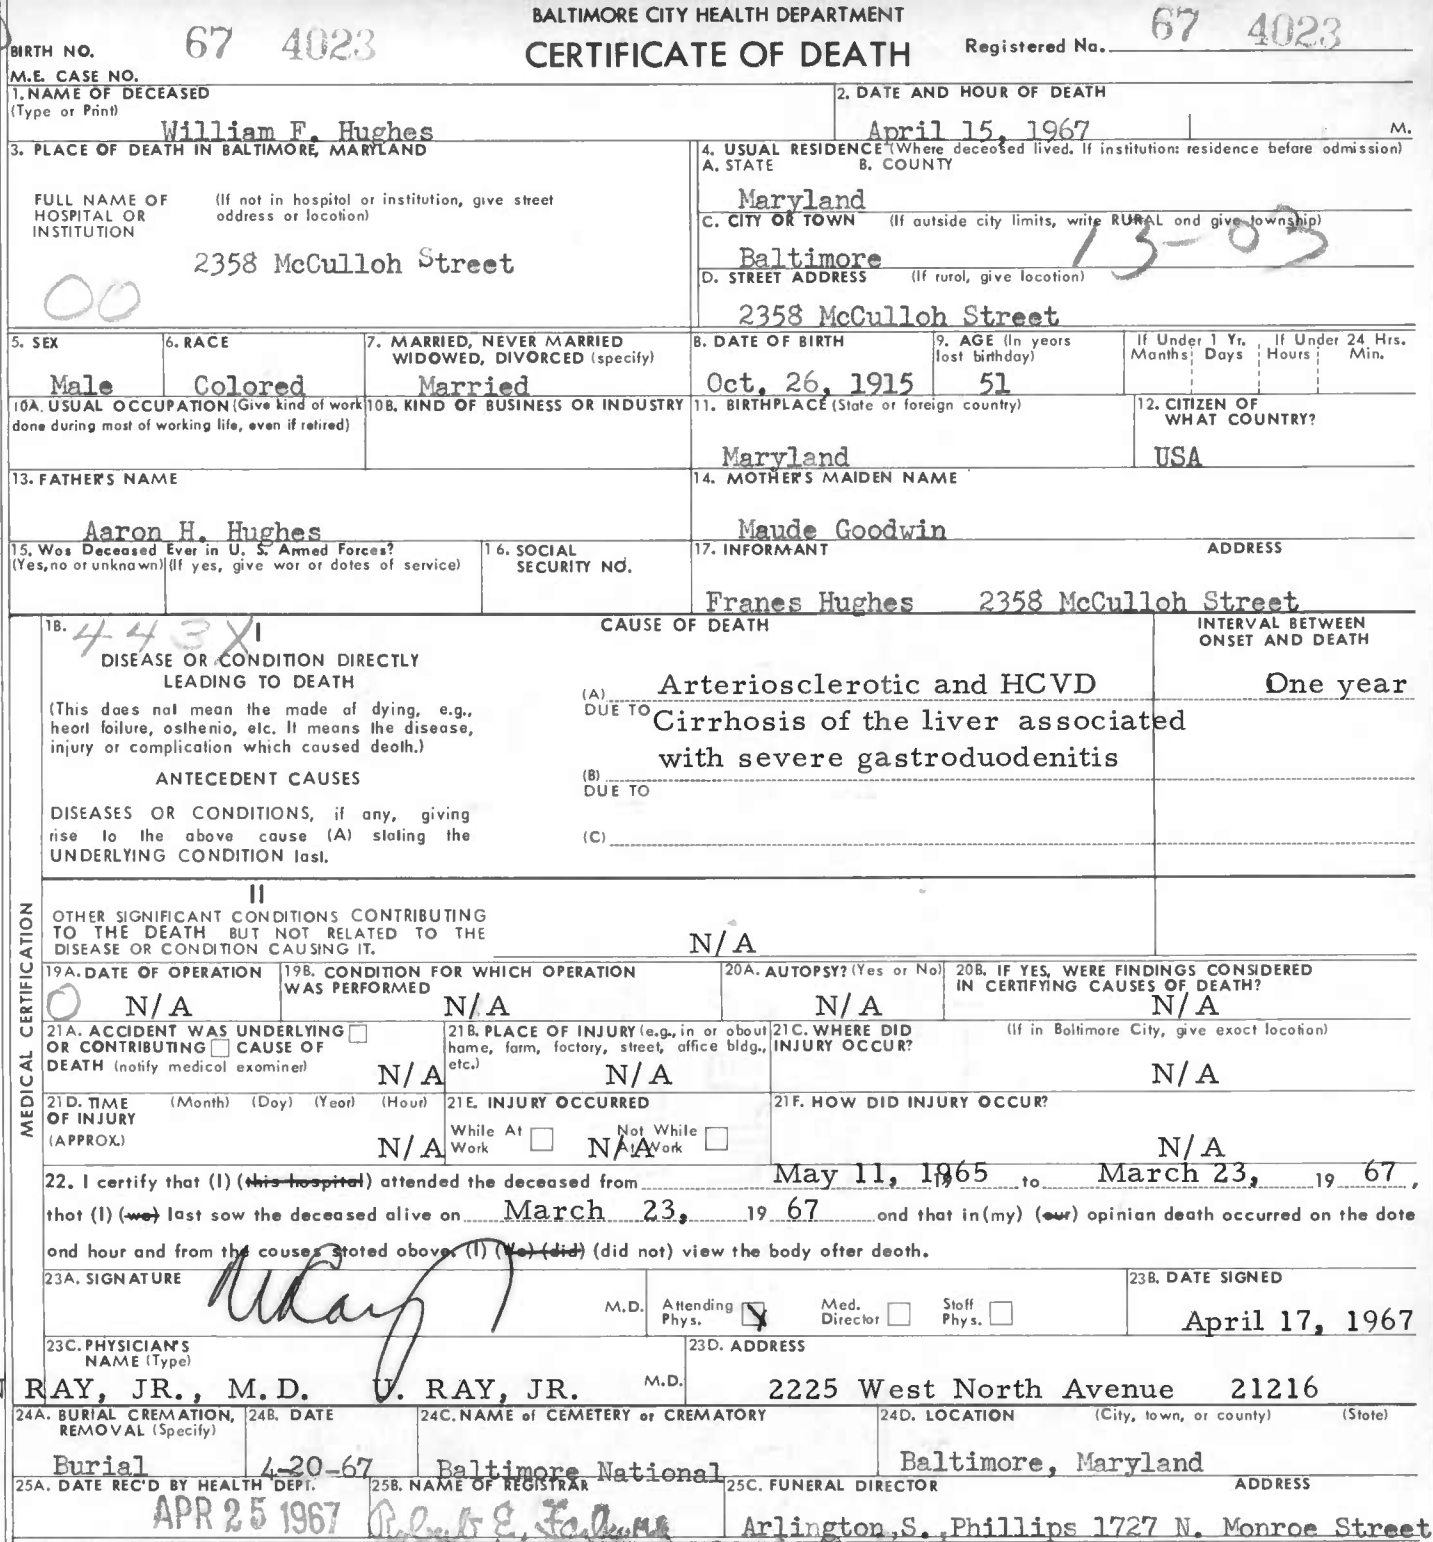 BALTIMORE CITY HEALTH DEPARTMENT
CERTIFICATE OF DEATH
BIRTH NO. 67 4023
Registered No. 67 4023
M.E. CASE NO.
1. NAME OF DECEASED
(Type or Print)
William F. Hughes
2. DATE AND HOUR OF DEATH
April 15, 1967 M.
3. PLACE OF DEATH IN BALTIMORE, MARYLAND
FULL NAME OF HOSPITAL OR INSTITUTION
(If not in hospital or institution, give street address or location)
2358 McCulloh Street
00
4. USUAL RESIDENCE (Where deceased lived. If institution: residence before admission)
A. STATE B. COUNTY
Maryland
C. CITY OR TOWN (If outside city limits, write RURAL and give township)
Baltimore 13-03
D. STREET ADDRESS (If rural, give location)
2358 McCulloh Street
5. SEX
Male
6. RACE
Colored
7. MARRIED, NEVER MARRIED
WIDOWED, DIVORCED (specify)
Married
8. DATE OF BIRTH
Oct. 26, 1915
9. AGE (In years
last birthday)
51
If Under 1 Yr.
Months Days
If Under 24 Hrs.
Hours Min.
10A. USUAL OCCUPATION (Give kind of work
done during most of working life, even if retired)
10B. KIND OF BUSINESS OR INDUSTRY
11. BIRTHPLACE (State or foreign country)
Maryland
12. CITIZEN OF
WHAT COUNTRY?
USA
13. FATHER'S NAME
Aaron H. Hughes
14. MOTHER'S MAIDEN NAME
Maude Goodwin
15. Was Deceased Ever in U. S. Armed Forces?
(Yes, no or unknown) (If yes, give war or dates of service)
16. SOCIAL
SECURITY NO.
17. INFORMANT ADDRESS
Franes Hughes 2358 McCulloh Street
MEDICAL CERTIFICATION
18. 443X I
CAUSE OF DEATH
INTERVAL BETWEEN
ONSET AND DEATH
DISEASE OR CONDITION DIRECTLY
LEADING TO DEATH
(This does not mean the mode of dying, e.g.,
heart failure, asthenia, etc. It means the disease,
injury or complication which caused death.)
ANTECEDENT CAUSES
DISEASES OR CONDITIONS, if any, giving
rise to the above cause (A) stating the
UNDERLYING CONDITION last.
(A) Arteriosclerotic and HCVD One year
DUE TO Cirrhosis of the liver associated
with severe gastroduodenitis
(B)
DUE TO
(C)
II
OTHER SIGNIFICANT CONDITIONS CONTRIBUTING
TO THE DEATH BUT NOT RELATED TO THE
DISEASE OR CONDITION CAUSING IT.
N/A
19A. DATE OF OPERATION
0 N/A
19B. CONDITION FOR WHICH OPERATION
WAS PERFORMED
N/A
20A. AUTOPSY? (Yes or No)
N/A
20B. IF YES, WERE FINDINGS CONSIDERED
IN CERTIFYING CAUSES OF DEATH?
N/A
21A. ACCIDENT WAS UNDERLYING
OR CONTRIBUTING CAUSE OF
DEATH (notify medical examiner)
N/A
21B. PLACE OF INJURY (e.g., in or about
home, farm, factory, street, office bldg.,
etc.)
N/A
21C. WHERE DID
INJURY OCCUR?
(If in Baltimore City, give exact location)
N/A
21D. TIME
OF INJURY
(APPROX.)
(Month) (Day) (Year) (Hour)
N/A
21E. INJURY OCCURRED
While At
Work
Not While
At Work
N/A
21F. HOW DID INJURY OCCUR?
N/A
22. I certify that (I) (this hospital) attended the deceased from May 11, 1965 to March 23, 19 67,
that (I) (we) last saw the deceased alive on March 23, 19 67 and that in (my) (our) opinian death occurred on the date
and hour and from the causes stated above. (I) (We) (did) (did not) view the body after death.
23A. SIGNATURE
M.D.
Attending
Phys.
Med.
Director
Staff
Phys.
23B. DATE SIGNED
April 17, 1967
23C. PHYSICIAN'S
NAME (Type)
RAY, JR., M. D. U. RAY, JR. M.D.
23D. ADDRESS
2225 West North Avenue 21216
24A. BURIAL CREMATION,
REMOVAL (Specify)
Burial
24B. DATE
4-20-67
24C. NAME of CEMETERY or CREMATORY
Baltimore National
24D. LOCATION (City, town, or county) (State)
Baltimore, Maryland
25A. DATE REC'D BY HEALTH DEPT.
APR 25 1967
25B. NAME OF REGISTRAR
Robert E. Farber
25C. FUNERAL DIRECTOR ADDRESS
Arlington S. Phillips 1727 N. Monroe Street